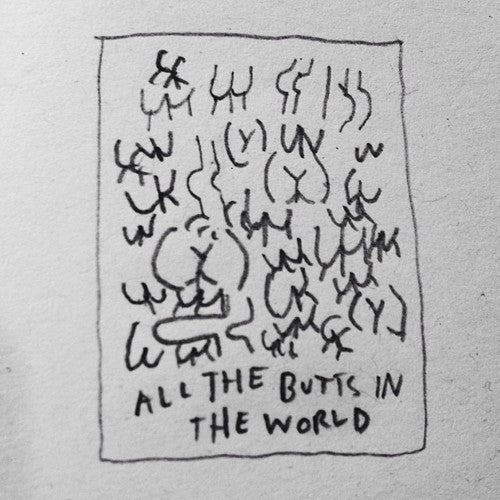 ALL THE BUTTS IN
THE WORLD